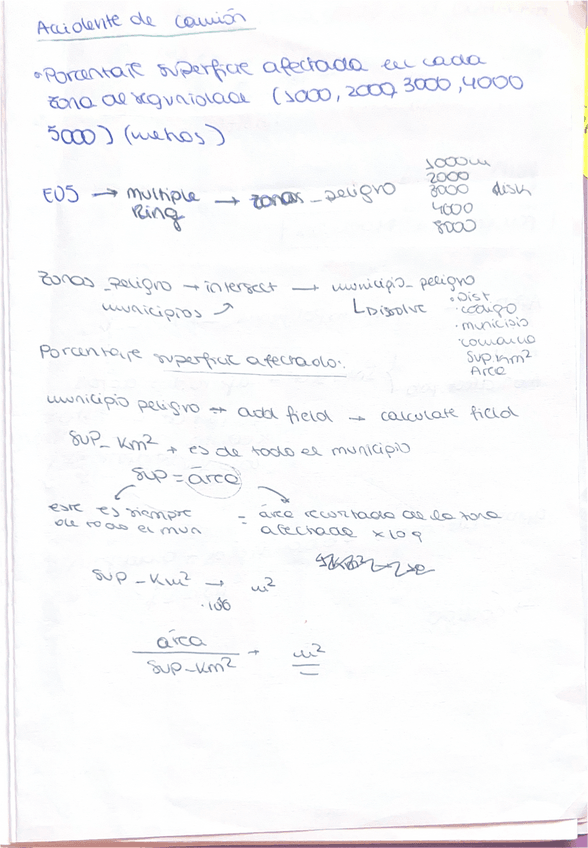 Accidente de camión
• Porcentaje superficie afectada en cada
zona de seguridad (1000, 2000, 3000, 4000
5000) (menos)
1000m
2000
EOS → multiple → zonas_peligro 3000 dish
Ring 4000
5000
zonas_peligro → intersect → municipio_peligro
municipios ↗ Dissolve
• Dist
• codigo
• municipio
• comarca
Sup km²
Area
Porcentaje superficie afectado:
municipio peligro → add field → calculate field
SUP_Km² → es de todo el municipio
sup = área
este es siempre
de todo el mun
= área recortado de la zona
afectada x los
SUP_Km² → m²
·106
área
SUP_Km² → m²